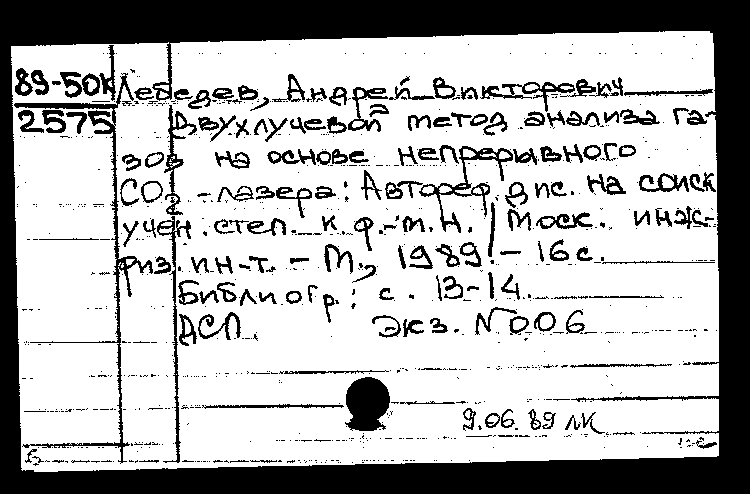 89-50к Лебедев, Андрей Викторович
2575 Двухлучевой метод анализа га-
зов на основе непрерывного
CO2-лазера: Автореф. дис. на соиск
учен. степ. к. ф.-м. н. / Моск. инж.-
физ. ин-т. - М., 1989. - 16 с.
Библиогр.: с. 13-14.
ДСП. Экз. N 006
9.06.89 ЛК